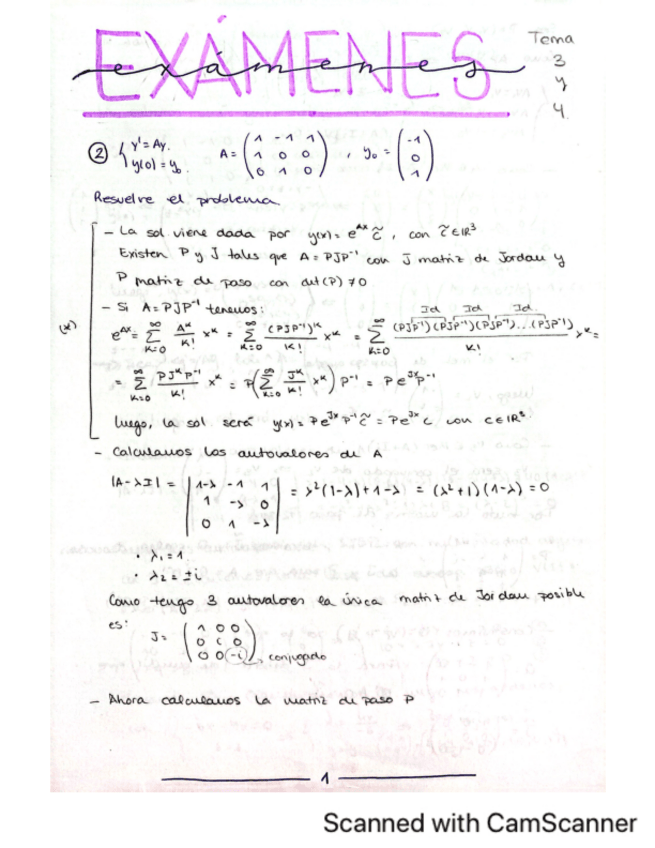 EXÁMENES
exámenes
Tema
3
y
4.
② { y' = Ay. y(0) = y₀ A = ( 1 -1 1 ; 1 0 0 ; 0 1 0 ) , y₀ = ( -1 ; 0 ; 1 )
Resuelve el problema.
- La sol viene dada por y(x) = e^{Ax} c̃, con c̃ ∈ ℝ³
Existen P y J tales que A = PJP⁻¹ con J matriz de Jordan y
P matriz de paso con det(P) ≠ 0
- Si A = PJP⁻¹ tenemos:
(*) e^{Ax} = ∑_{k=0}^{∞} A^k/k! x^k = ∑_{k=0}^{∞} (PJP⁻¹)^k/k! x^k = ∑_{k=0}^{∞} (PJP⁻¹)(PJP⁻¹)(PJP⁻¹)...(PJP⁻¹)/k! x^k =
Id Id Id.
= ∑_{k=0}^{∞} PJ^kP⁻¹/k! x^k = P(∑_{k=0}^{∞} J^k/k! x^k) P⁻¹ = Pe^{Jx}P⁻¹
Luego, la sol. será y(x) = Pe^{Jx}P⁻¹c̃ = Pe^{Jx}c con c ∈ ℝ³
- Calculamos los autovalores de A
|A-λI| = | 1-λ -1 1 ; 1 -λ 0 ; 0 1 -λ | = λ²(1-λ)+1-λ = (λ²+1)(1-λ) = 0
· λ₁ = 1
· λ₂ = ±i
Como tengo 3 autovalores la única matriz de Jordan posible
es:
J = ( 1 0 0 ; 0 i 0 ; 0 0 -i ) → conjugado
- Ahora calculamos la matriz de paso P
1
Scanned with CamScanner